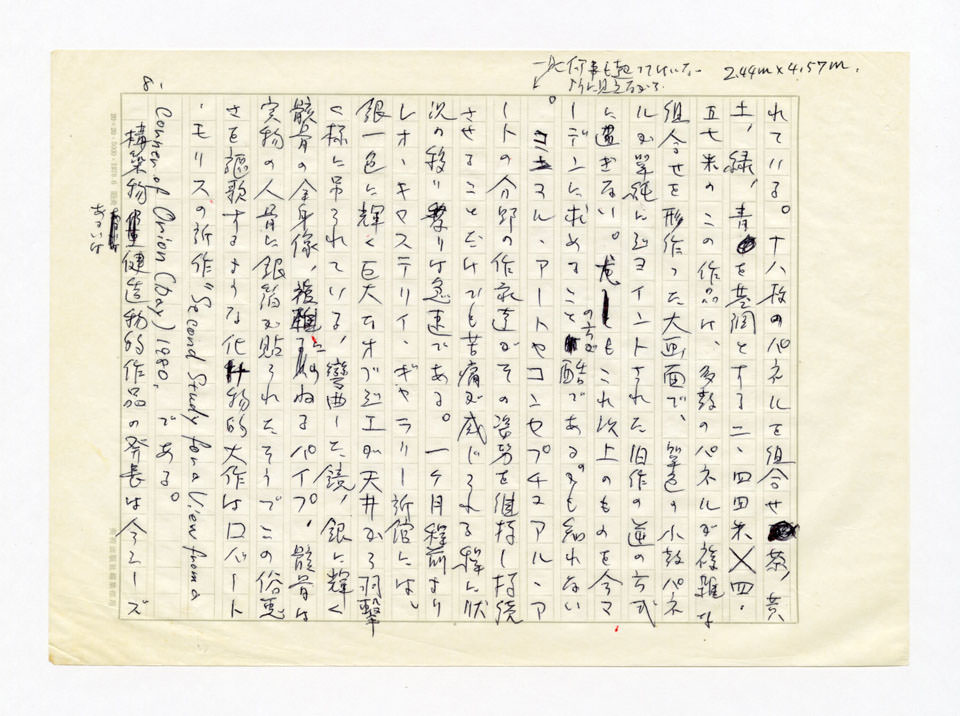 2.44m × 4.57m.
れている。十八枚のパネルを組合せ 茶、黄
土、緑、青 を基調とする二、四四米×四・
五七米のこの作品は、多数のパネルが複雑な
組合せを形作った大画面で、単色の小数パネ
ルが単純にジョイントされた旧作の逆の方式
に過ぎない。尤もこれ以上のものを今マ
ーデンに求めることの方が酷であるかも知れない
。ミニマル、アートやコンセプチュアル、ア
ートの分野の作家達がその姿勢を維持し持続
させることだけでも苦痛が感じられる程に状
況の移り変りは急速である。一ケ月程前より
レオ、キャステリイ、ギャラリー新館には、
銀一色に輝く巨大なオブジェが天井から羽撃
く様に吊られている。彎曲した鏡、銀に輝く
骸骨の全身像、複雑に くねるパイプ、骸骨は
実物の人骨に銀箔が貼られたそうでこの俗悪
さを謳歌するような化物的大作はロバート
・モリスの近作"Second Study for a View from a
Corner of Orion (Day) 1980. である。
構築物 あるいは 建造物的作品の発表は今シーズ
8.